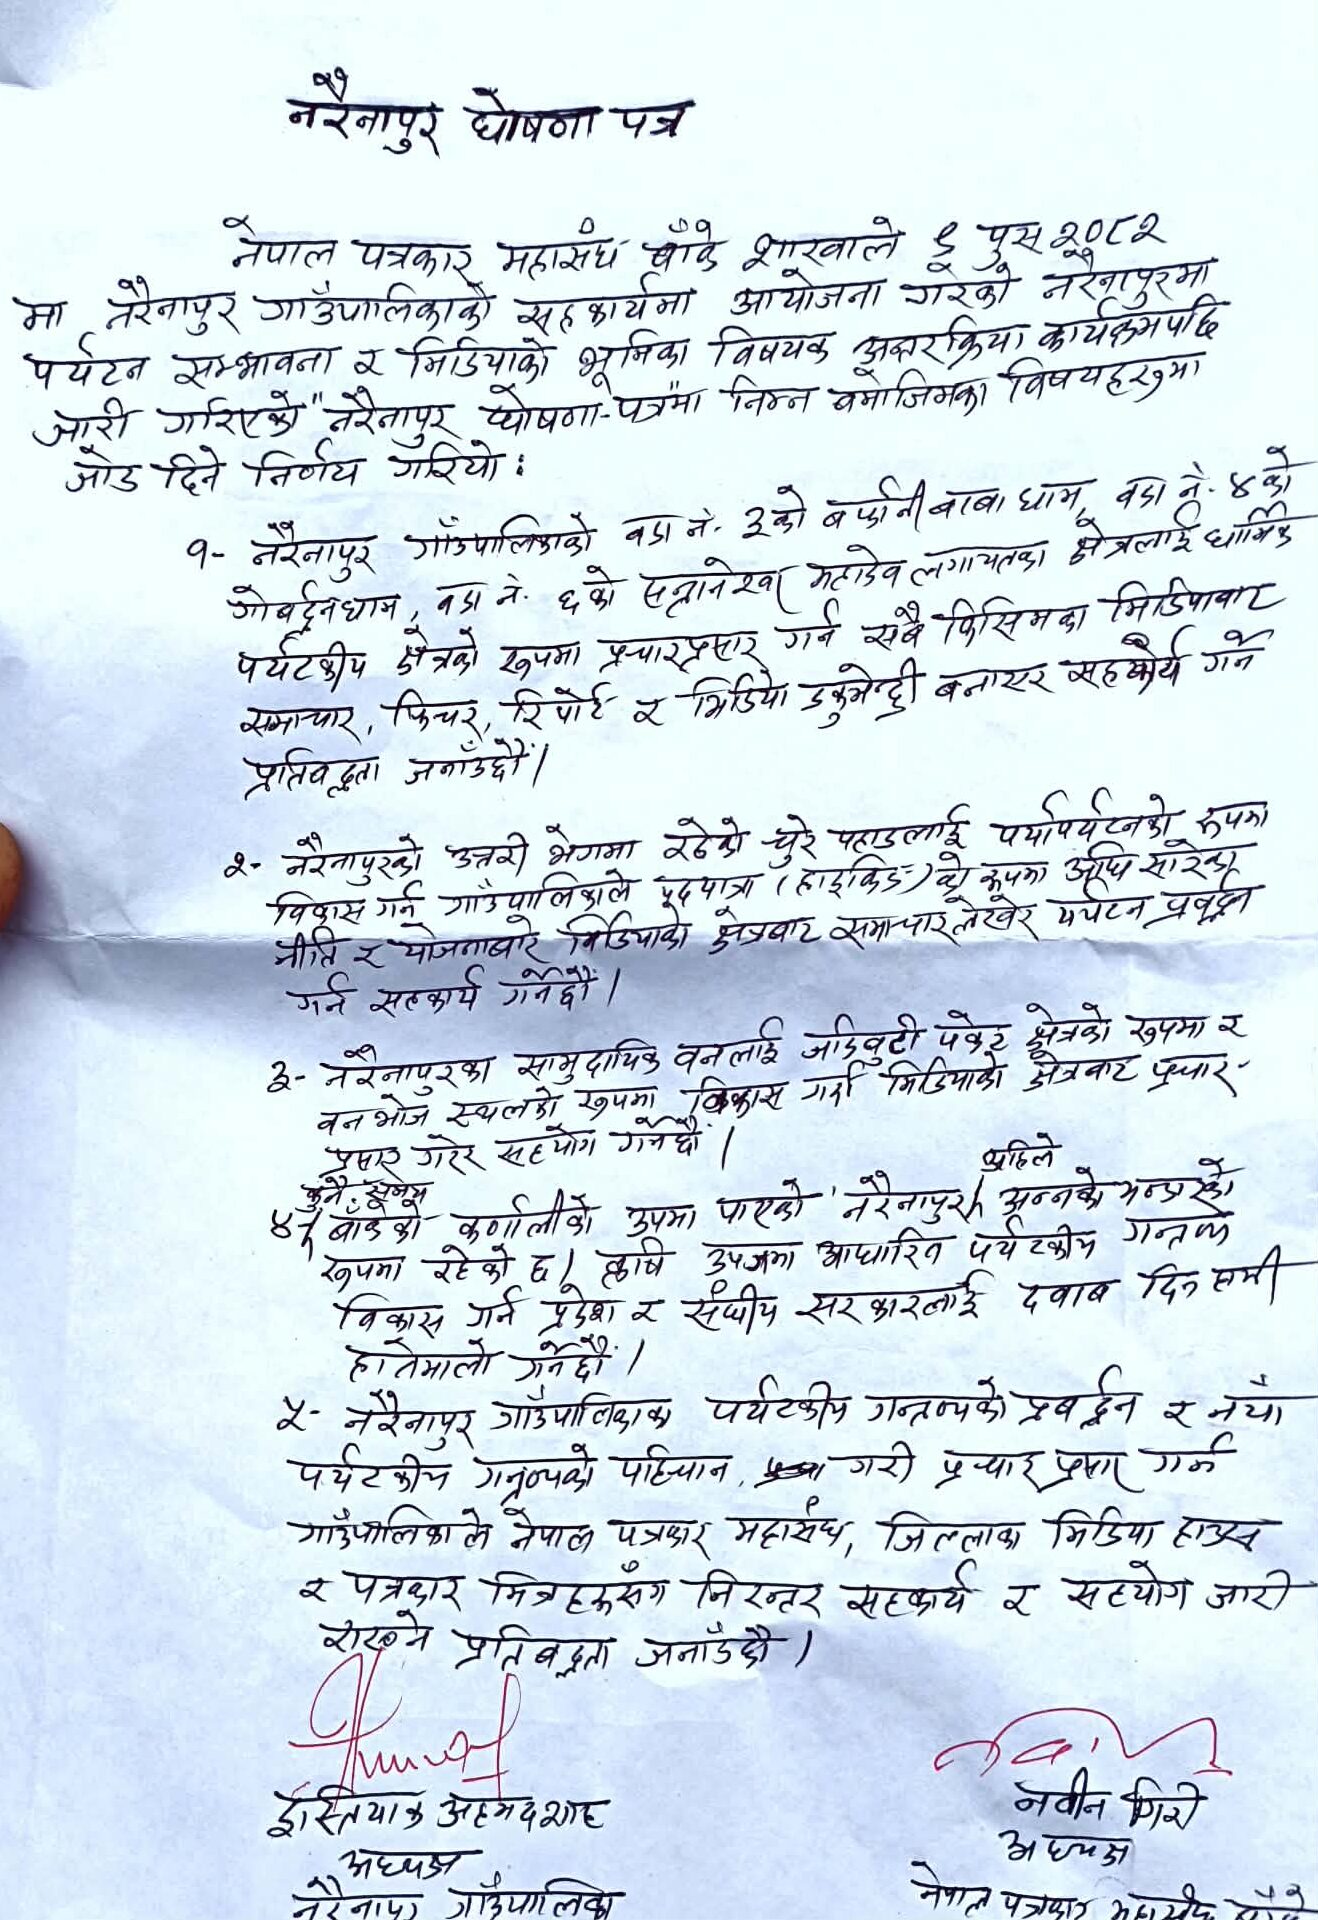 नरैनापुर घोषणा पत्र
नेपाल पत्रकार महासंघ बाँके शाखाले ९ पुस २०८२
मा नरैनापुर गाउँपालिकाको सहकार्यमा आयोजना गरेको नरैनापुरमा
पर्यटन सम्भावना र मिडियाको भूमिका विषयक अन्तरक्रिया कार्यक्रमपछि
जारी गरिएको "नरैनापुर घोषणा-पत्र"मा निम्न बमोजिमका विषयहरुमा
जोड दिने निर्णय गरियो :
१- नरैनापुर गाउँपालिकाको वडा नं. ३को बर्फानी बाबा धाम, वडा नं. ४को
गोबर्द्धनधाम, वडा नं. ६को महादेव लगायतका क्षेत्रलाई धार्मिक
पर्यटकीय क्षेत्रको रुपमा प्रचारप्रसार गर्न सबै किसिमका मिडियाबाट
समाचार, फिचर, रिपोर्ट र भिडियो डकुमेन्ट्री बनाएर सहकार्य गर्ने
प्रतिबद्धता जनाउँछौं।
२- नरैनापुरको उत्तरी भेगमा रहेको चुरे पहाडलाई पर्यापर्यटनको रुपमा
विकास गर्न गाउँपालिकाले पदयात्रा (हाइकिङ) को रुपमा अघि सारेका
नीति र योजनाबारे मिडियाको क्षेत्रबाट समाचार लेखेर पर्यटन प्रवर्द्धन
गर्न सहकार्य गर्नेछौं।
३- नरैनापुरका सामुदायिक वनलाई जडिबुटी पकेट क्षेत्रको रुपमा र
वनभोज स्थलको रुपमा विकास गर्न मिडियाको क्षेत्रबाट प्रचार-
प्रसार गरेर सहयोग गर्नेछौं।
४- कुनै समय बाँकेको कर्णालीको उपमा पाएको नरैनापुर अहिले अन्नको भण्डारको
रुपमा रहेको छ। कृषि उपजमा आधारित पर्यटकीय गन्तव्य
विकास गर्न प्रदेश र संघीय सरकारलाई दवाब दिन हामी
हातेमालो गर्नेछौं।
५- नरैनापुर गाउँपालिकाका पर्यटकीय गन्तव्यको प्रवर्द्धन र नयाँ
पर्यटकीय गन्तव्यको पहिचान गरी प्रचार प्रसार गर्न
गाउँपालिकाले नेपाल पत्रकार महासंघ, जिल्लाका मिडिया हाउस
र पत्रकार मित्रहरुसँग निरन्तर सहकार्य र सहयोग जारी
राख्ने प्रतिबद्धता जनाउँछौं।
इस्तियाक अहमद शाह
अध्यक्ष
नरैनापुर गाउँपालिका
नवीन गिरी
अध्यक्ष
नेपाल पत्रकार महासंघ बाँके